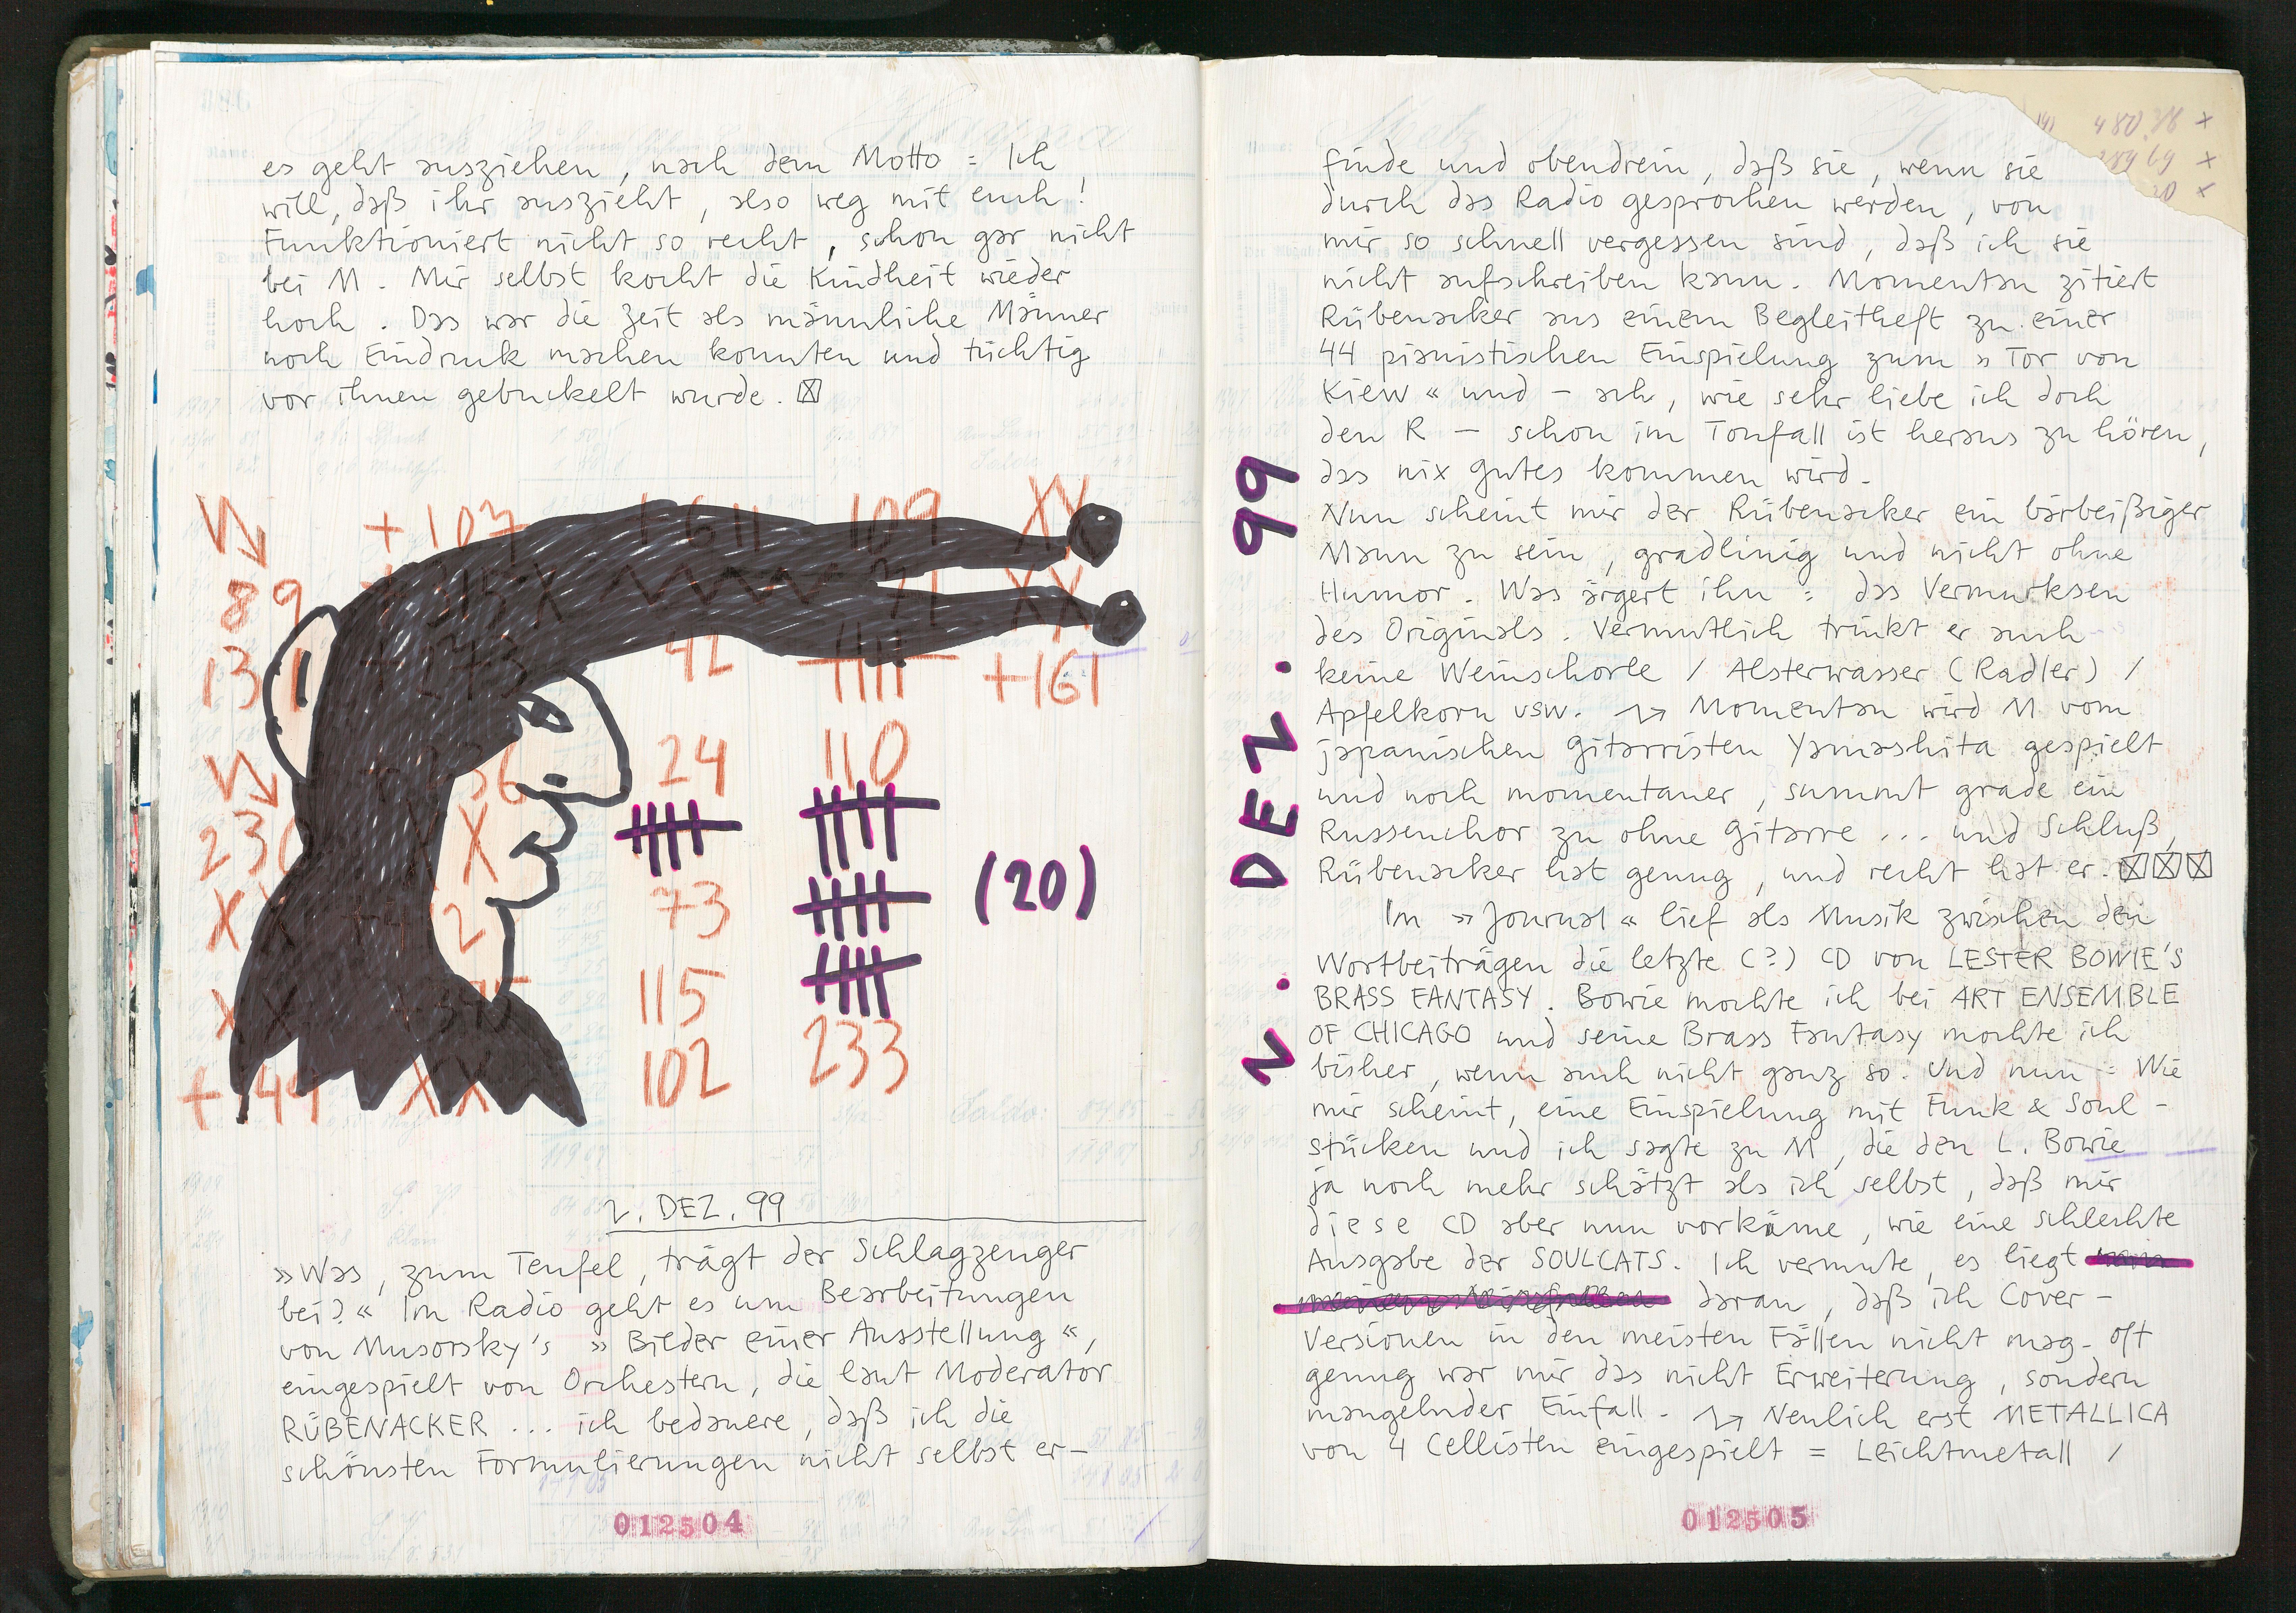 es geht ausziehen, nach dem Motto = Ich
will, daß ihr auszieht, also weg mit euch!
Funktioniert nicht so recht, schon gar nicht
bei M. Mir selbst kocht die Kindheit wieder
hoch. Das war die Zeit als männliche Männer
noch Eindruck machen konnten und tüchtig
vor ihnen gebuckelt wurde.
+ 107 1611 109 XX
89 315X 71 XX
131 +273 42 +161
136 24 110
230 XX
XX 2 73 (20)
XX 375 115
+ 49 XX 102 233
2. DEZ. 99
»Was, zum Teufel, trägt der Schlagzeuger
bei?« Im Radio geht es um Bearbeitungen
von Musorsky's »Bilder einer Ausstellung«,
eingespielt von Orchestern, die laut Moderator
RÜBENACKER ... ich bedauere, daß ich die
schönsten Formulierungen nicht selbst er-
012504
480,76 x
289 69 x
20 x
finde und obendrein, daß sie, wenn sie
durch das Radio gesprochen werden, von
mir so schnell vergessen sind, daß ich sie
nicht aufschreiben kann. Momentan zitiert
Rübenacker aus einem Begleitheft zu einer
44 pianistischen Einspielung zum »Tor von
Kiew« und – ach, wie sehr liebe ich doch
den R – schon im Tonfall ist heraus zu hören,
das nix gutes kommen wird.
Nun scheint mir der Rübenacker ein bärbeißiger
Mann zu sein, gradlinig und nicht ohne
Humor. Was ärgert ihn = das Vermurksen
des Originals. Vermutlich trinkt er auch
keine Weinschorle / Alsterwasser (Radler) /
Apfelkorn usw. Momentan wird M vom
japanischen Gitarristen Yamashita gespielt
und noch momentaner, summt grade ein
Russenchor zu ohne Gitarre ... und Schluß,
Rübenacker hat genug, und recht hat er.
Im »Journal« lief als Musik zwischen den
Wortbeiträgen die letzte (?) CD von LESTER BOWIE'S
BRASS FANTASY. Bowie mochte ich bei ART ENSEMBLE
OF CHICAGO und seine Brass Fantasy mochte ich
bisher, wenn auch nicht ganz so. Und nun = Wie
mir scheint, eine Einspielung mit Funk & Soul-
stücken und ich sagte zu M, die den L. Bowie
ja noch mehr schätzt als ich selbst, daß mir
diese CD aber nun vorkäme, wie eine schlechte
Ausgabe der SOULCATS. Ich vermute, es liegt
daran, daß ich Cover-
Versionen in den meisten Fällen nicht mag. Oft
genug war mir das nicht Erweiterung, sondern
mangelnder Einfall. Neulich erst METALLICA
von 4 Cellisten eingespielt = Leichtmetall /
2. DEZ. 99
012505